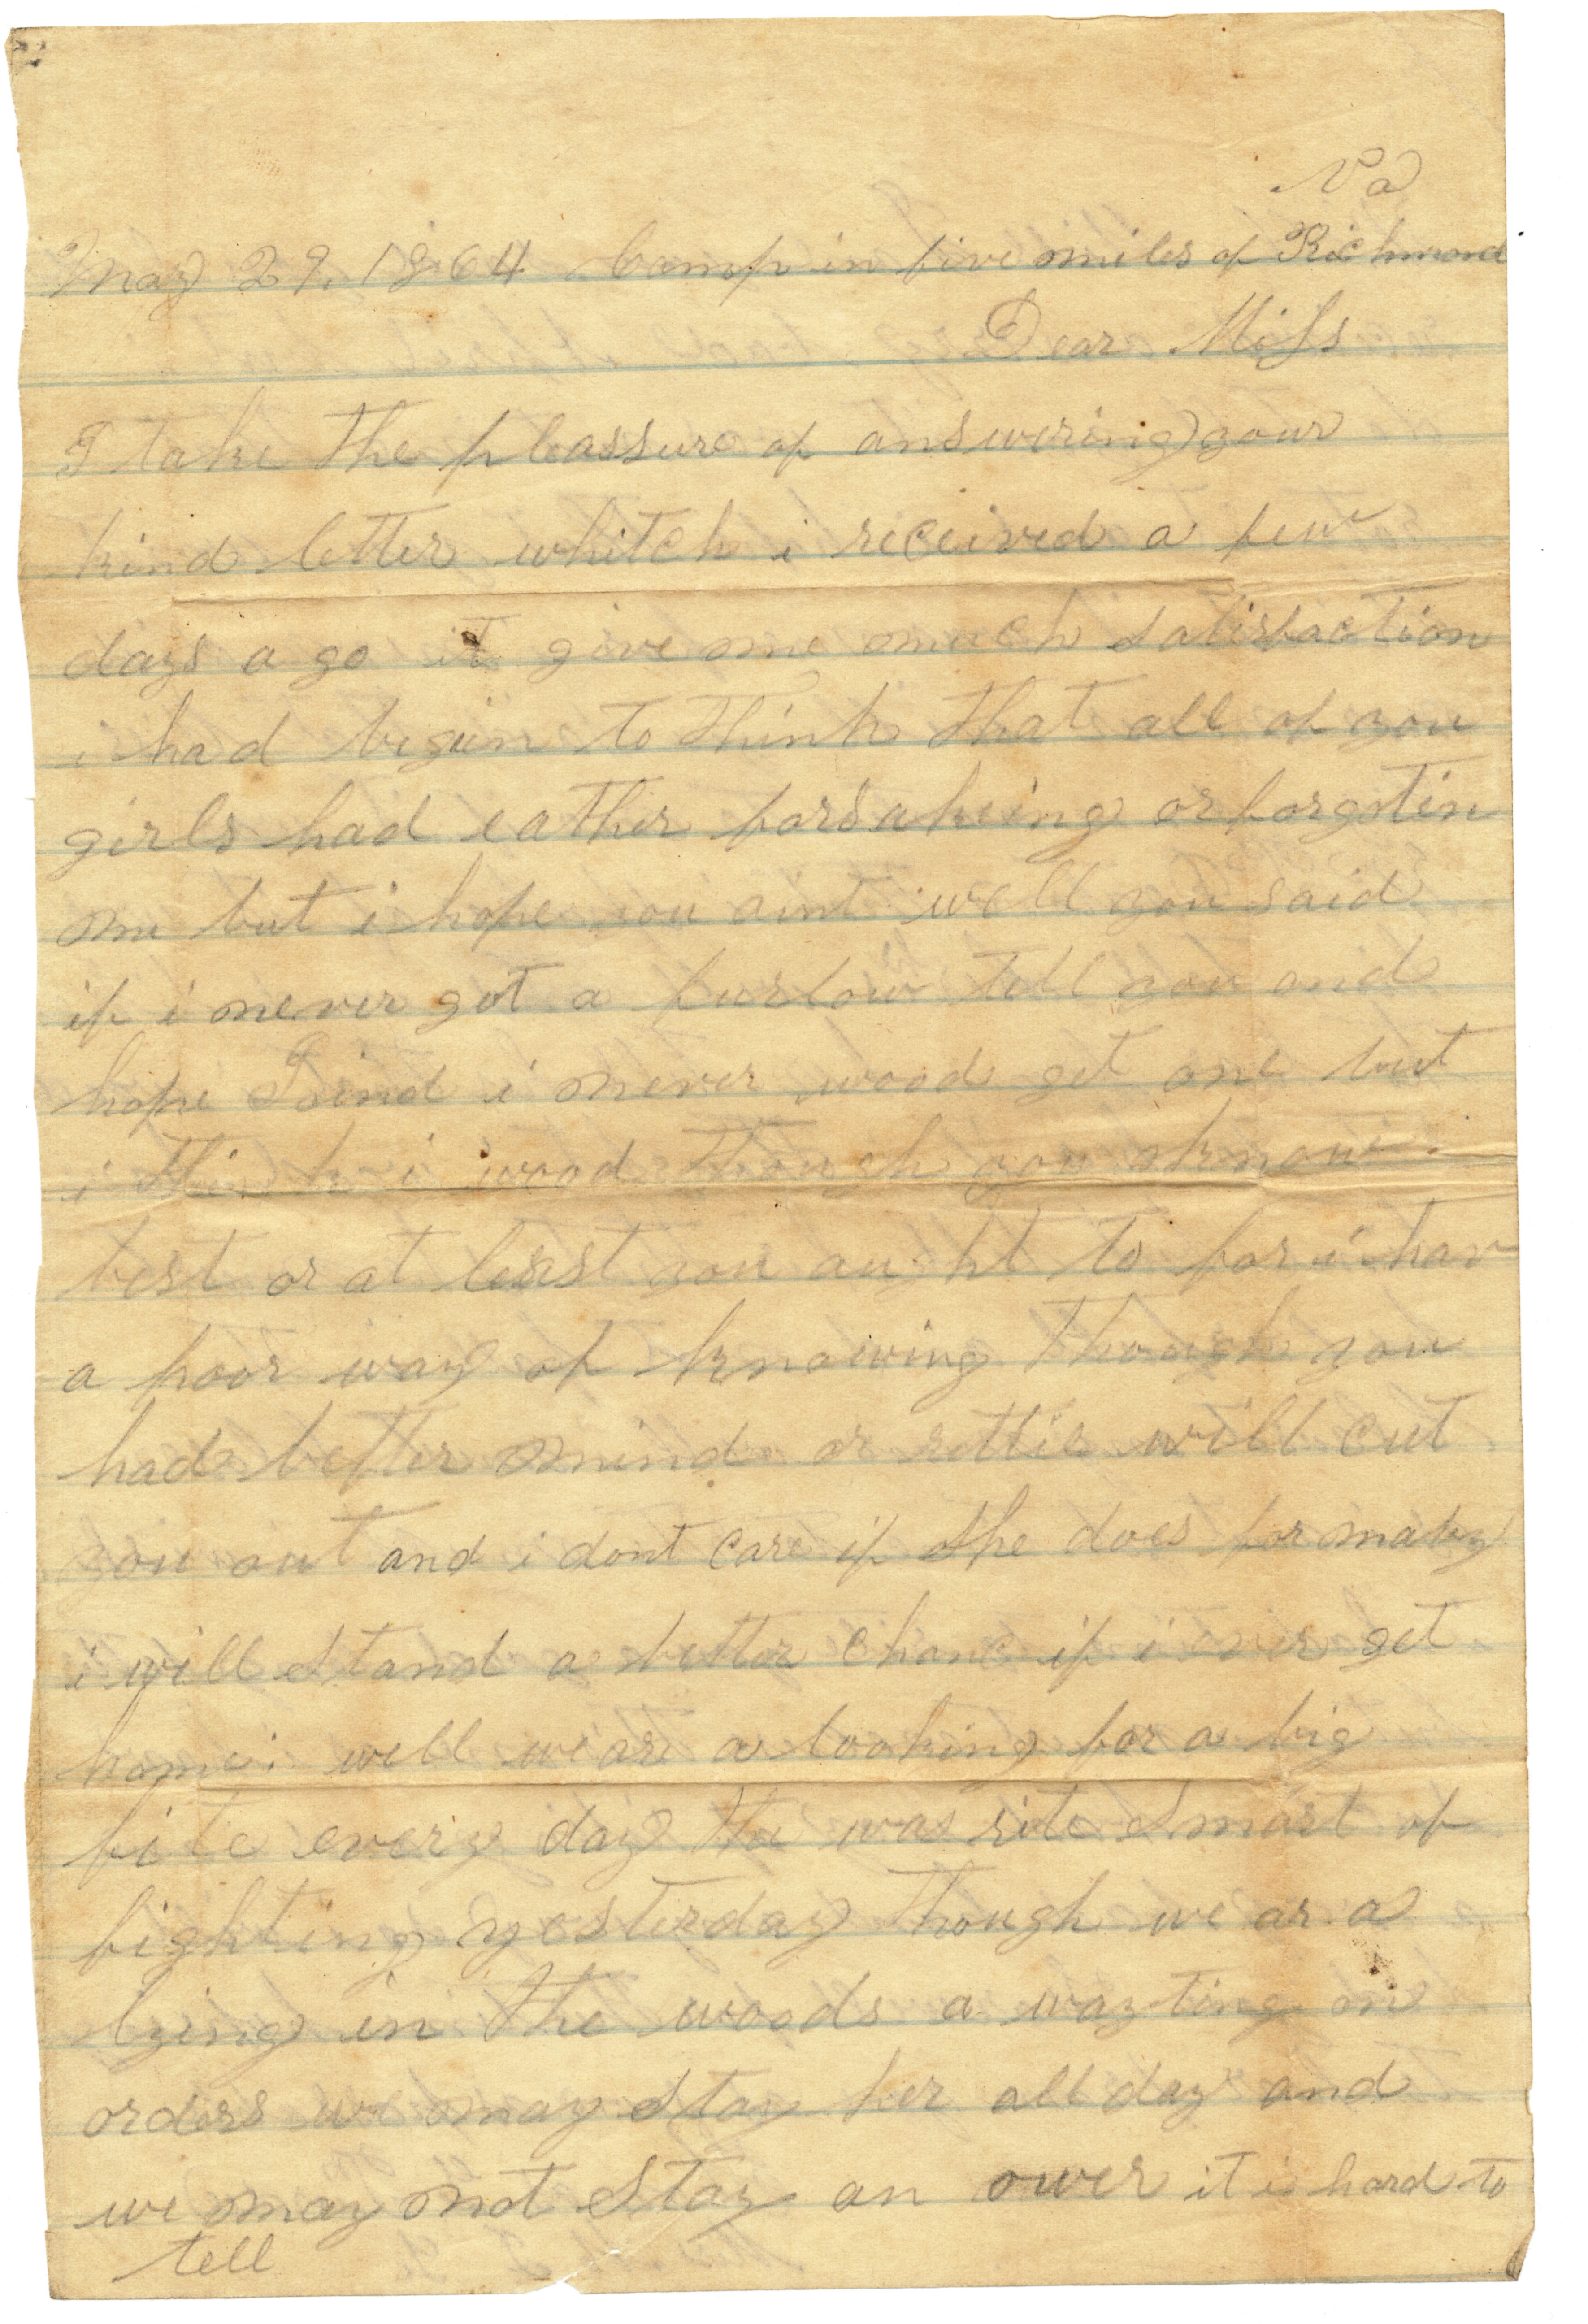 Va
May 29. 1864 Camp in five miles of Richmond
Dear Miss
I take the pleassure of answering your
kind letter whitch i received a few
days a go it give me much satisfaction
i had begun to think that all of you
girls had eather forsaking or forgotin
me but i hope you aint well you said
if i never got a furlow till you and
hope i never wood get one but
i think i wood though you know
best or at least you aught to for i hav
a poor way of knowing though you
had better mind or rettie will cut
you out and i dont care if she does for maby
i will stand a better chanc if i ever get
home. well we are a looking for a big
fite every day the was rite smart of
fighting yesterday though we ar a
lying in the woods a wayting on
orders we may stay her all day and
we may not stay an ower it is hard to
tell